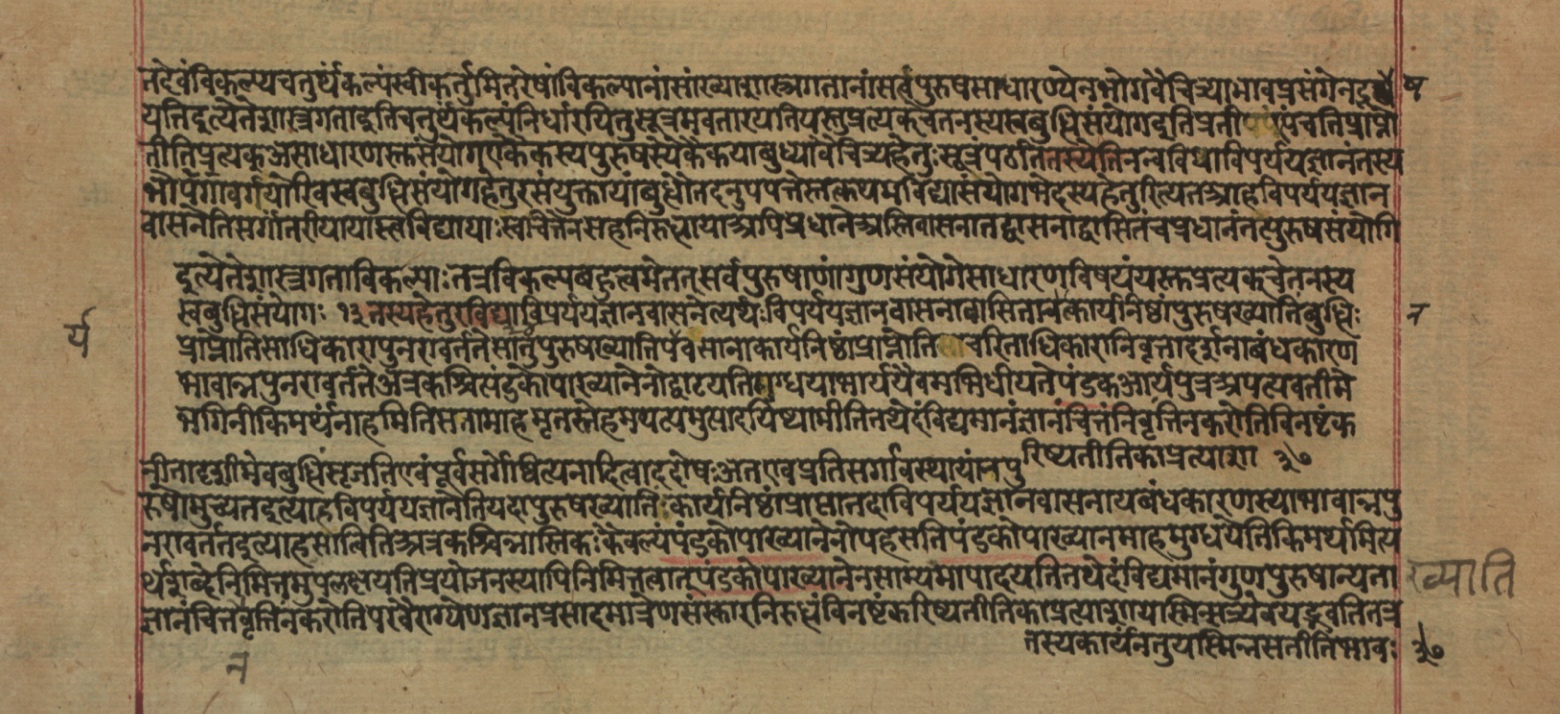 तदेवंविकल्प्यचतुर्थंकल्पंस्वीकर्तुमितरेषांविकल्पानांसांख्याशास्त्रगतानांसर्वपुरुषसाधारण्येनभोगवैचित्र्याभावप्रसंगेनदू ष
यतिइत्येतेशास्त्रगताइतिचतुर्थंकल्पंनिर्धारयितुसूत्रमवतारयतियस्तुप्रत्यक्चेतनस्यस्वबुद्धिसंयोगइतिप्रतीपमंचतिप्राप्नो
तीतिप्रत्यक्असाधारणस्तसंयोगएकैकस्यपुरुषस्यैकैकयाबुध्यावैचित्र्यहेतुःसूत्रंपठतितस्येतिनन्वविद्याविपर्ययज्ञानंतस्य
भोर्पर्गावर्गयोरिवस्वबुद्धिसंयोगहेतुरसंयुक्तायांबुद्धौतदनुपपत्तेस्तत्कथमविद्यासंयोगभेदस्यहेतुरित्यतआहविपर्ययज्ञान
वासनेतिसर्गांतरीयायास्त्वविद्यायाःस्वचित्तेनसहनिरुद्धायाअपिप्रधानेअस्तिवासनातद्वासनाद्वासितंचप्रधानंतत्पुरुषसंयोगि
इत्येतेशास्त्रगताविकल्पाःतत्रविकल्पबहुत्वमेतत्सर्वपुरुषाणांगुणसंयोगेसाधारणविषयंयस्तप्रत्यक्चेतनस्य
स्वबुद्धिसंयोगः १३तस्यहेतुरविद्याविपर्ययज्ञानवासनेत्यर्थःविपर्ययज्ञानवासनावासितानकार्यनिष्ठांपुरुषख्यातिंबुद्धिः न
र्य प्राप्नोतिसाधिकारापुनरावर्ततेसातुपुरुषख्यातिपर्यवसानाकार्यनिष्ठांप्राप्नोतिचरिताधिकारानिवृत्तादर्शनाबंधकारण
भावान्नपुनरावर्ततेअत्रकश्चित्पंडकोपाख्यानेनोद्घाटयतिमुग्धयाभार्ययैवमभिधीयतेपंडकआर्यपुत्रअपत्यवतीमे
भगिनीकिमर्थंनाहमितिसतामाहमृतस्तेहमपत्यमुत्पादयिष्यामीतितथेदंविद्यमानंज्ञानंचित्तंनिवृत्तिंनकरोतिविनष्टंक
रिष्यतीतिकाप्रत्याशा ३७
नीतादृशीमेवबुद्धिंसृजतिएवंपूर्वसर्गेष्वित्यनादित्वाददोषःअतएवप्रतिसर्गावस्थायांनपु
रुषोमुच्यतइत्याहविपर्ययज्ञानेतियदापुरुषख्यातिंकार्यनिष्ठांप्राप्तातदाविपर्ययज्ञानवासनायबंधकारणस्याभावान्नपु
नरावर्ततइत्याहसात्वितिअत्रकश्चिन्नास्तिकःकैवल्यंपंडकोपाख्यानेनोपहसतिपंडकोपाख्यानमाहमुग्धयेतिकिमर्थमित्य
र्थशब्देनिमित्तमुपलक्षयतिप्रयोजनस्यापिनिमित्तत्वात्पंडकोपाख्यानेनसाम्यमापादयतितथेदंविद्यमानंगुणपुरुषान्यता ख्याति
ज्ञानंचित्तवृत्तिंनकरोतिपरवैराग्येणज्ञानप्रसादमात्रेणसंस्कारनिरुद्धंविनष्टंकरिष्यतीतिकाप्रत्याशायास्मिन्सत्येवयद्भवतितत्र
तस्यकार्यंनतुयस्मिन्नसतीतिभावः ३७
न